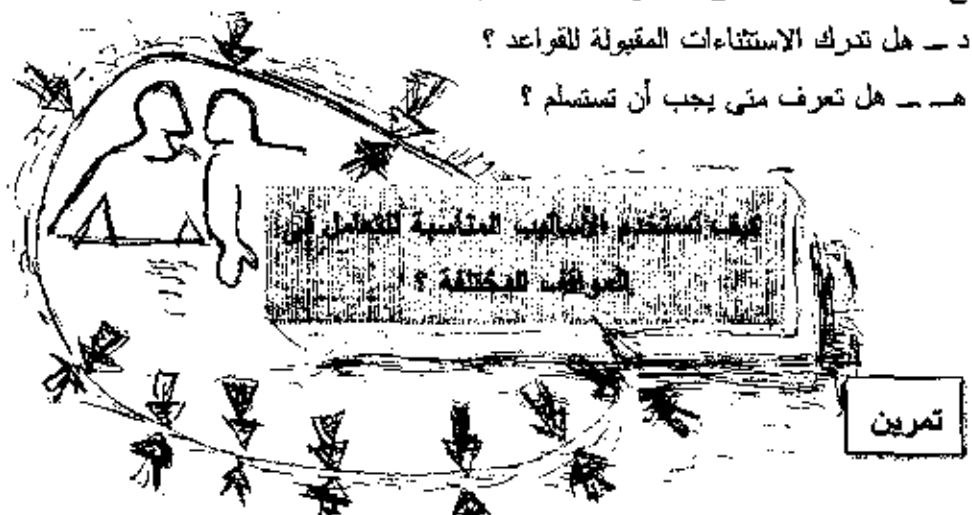 د – هل تدرك الاستثناءات المقبولة للقواعد ؟
هـ – هل تعرف متى يجب أن تستسلم ؟
كيف تستخدم الأساليب المناسبة للتعامل في
المواقف المختلفة ؟
تمرين